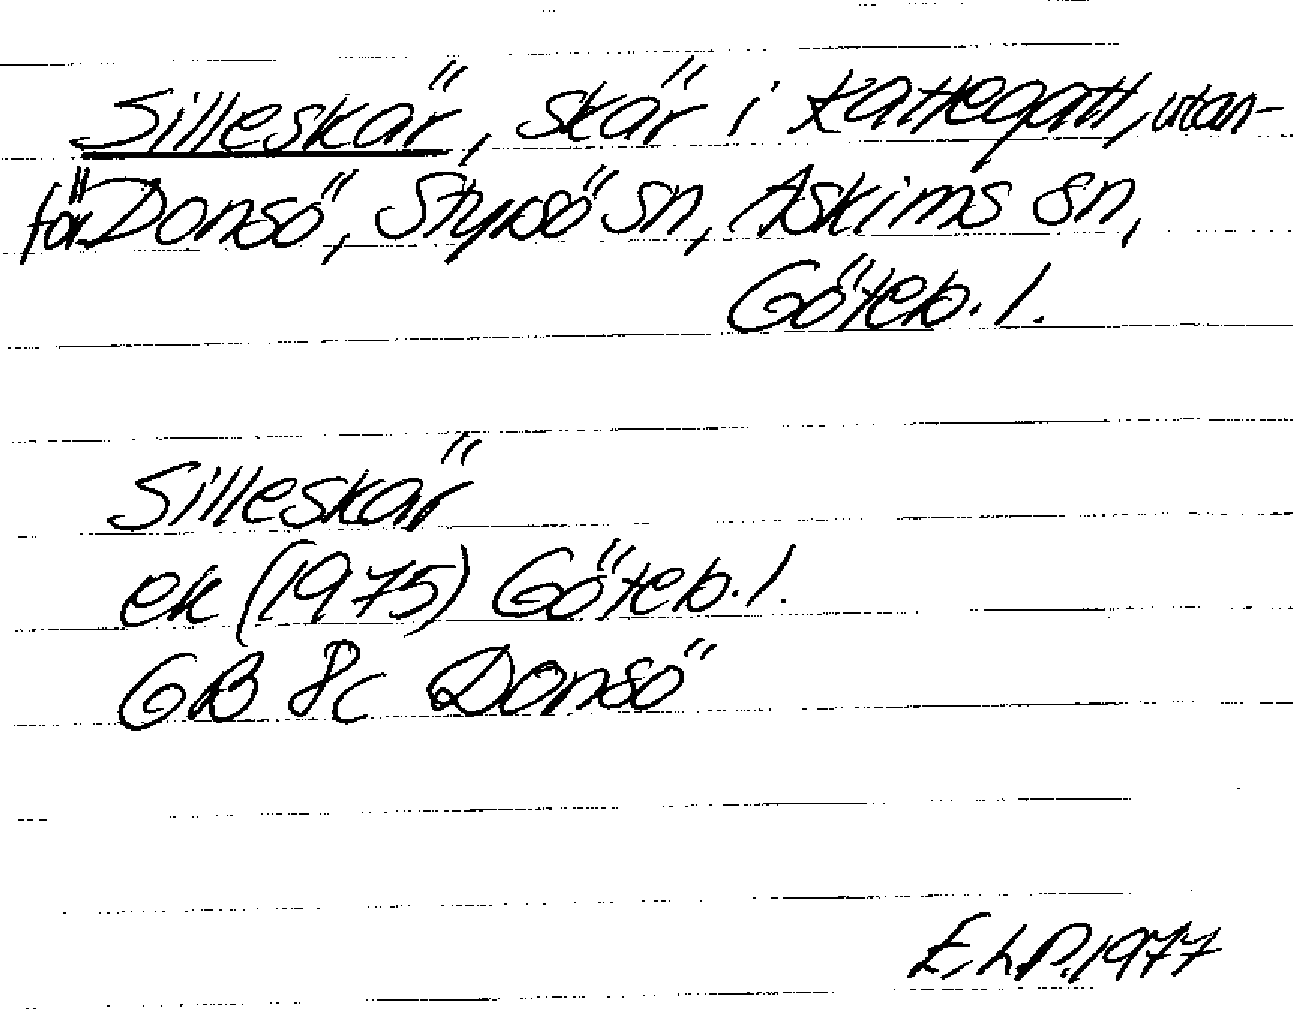 Silleskär, skär i Kattegatt, utan-
för Donsö, Styrsö sn, Askims sn,
Göteb. l.
Silleskär
ek (1975) Göteb. l.
GB 8c Donsö
E.h.P. 1977